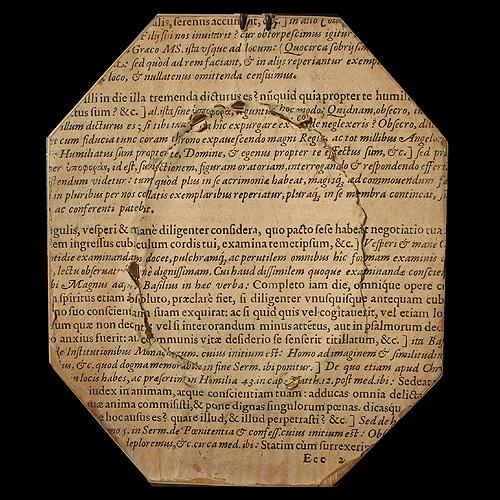 alis, serenus accum
filij nos inuitarit? cur obtorpescimus igitur
Græco MS. ista vsque ad locum: (Quocirca sobrij
sed quòd ad rem faciant, & in alijs reperiantur
loco, & nullatenus omittenda censuimus.
illi in die illa tremenda dicturus es? nūquid quia propter te humil
sum? &c. ] al. ista sine hoc modo: Quidnam, obsecro, in
illum dicturus es, si tibi hic expurgare neglexeris? Obsecro,
cum fiducia tunc coram throno expauescendo magni Regis, ac tot millibus Angelo
Humiliatus sum propter te, Domine, & egenus propter te effectus sum, &c. ] sed
id est, subiectionem, figuram oratoriam, interrogando & respondendo
endum videtur: tum quod plus in se acrimoniæ habeat, magisq; ad commouendum
in pluribus per nos collatis exemplaribus reperiatur, pluraq; in se membra contineat,
ac conferenti patebit.
gulis, vesperi & mane diligenter considera, quo pacto sese habeat negotiatio tua
em ingressus cubiculum cordis tui, examina temetipsum, &c. ] Vesperi & mane
tidie examinandam docet, pulchramq; ac perutilem omnibus hic formam examinis
lectu obseruatione dignissimam. Cui haud dissimilem quoque examinandæ
bi Magnus Basilius in hæc verba: Completo iam die, omnique opere
spiritus etiam absoluto, præclarè fiet, si diligenter vnusquisque antequam cub
no suo conscientiam suam exquirat: ac si quid quis vel cogitauerit, vel etiam
um quæ non decuit, vel si interorandum minus attétus, aut in psalmorum
o anxius fuerit: aut communis vitæ desiderio se senserit titillatum, &c. ] ita
de Institutionibus Monachorum. cuius initium est: Homo ad imaginem & similitudin
is, &c. quod dogma memorabile in fine Serm. ibi ponitur. ] De quo etiam apud
locis habes, ac præsertim Homilia 43. in cap. Matth. 12. post med. ibi: Sedeat
iudex in animam, atque conscientiam tuam: adducas omnia delicta
anima commisisti, & pone dignas singulorum pœnas. dicasq
hoc ausus es? quare illud, & illud perpetrasti? &c. ] Sed de
in Serm. de Pœnitentia & confess. cuius initium est:
leploremus, &c. circa med. ibi: Statim cùm surrexerim
Ecc 2